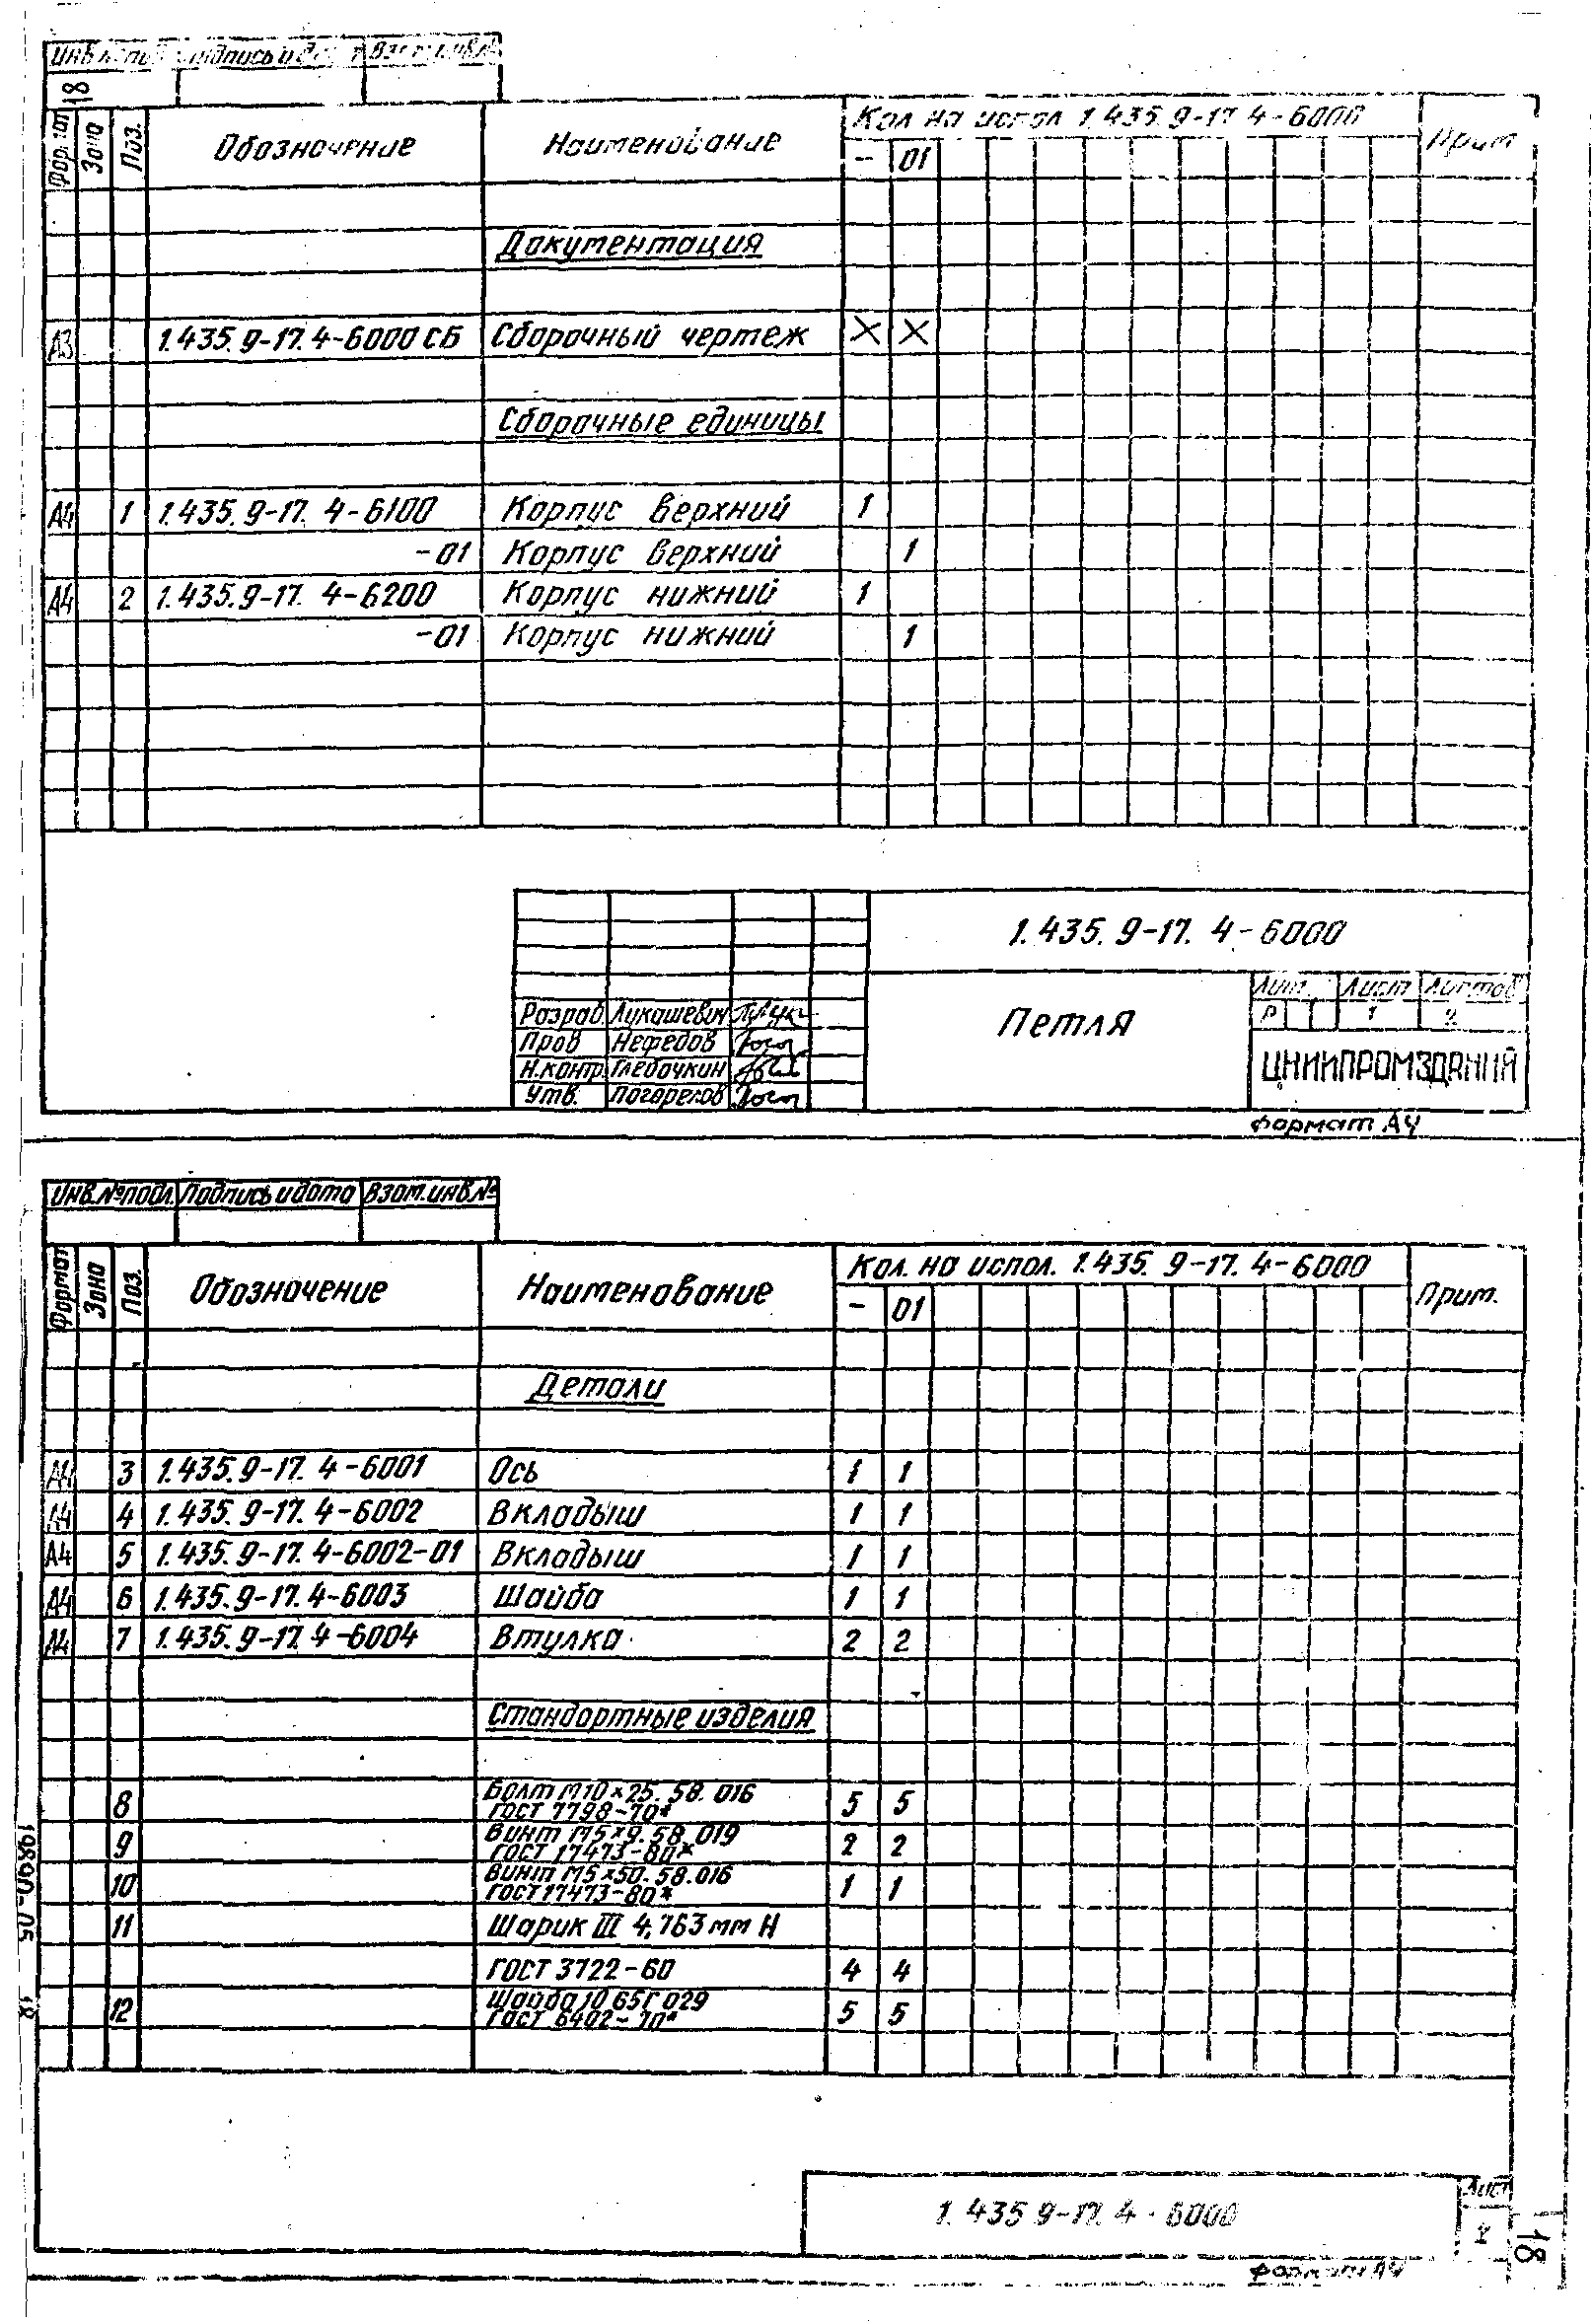 Инв.№ подл. Подпись и дата Взам.инв.№
18
Формат Зона Поз. Обозначение Наименование Кол. на испол. 1.435.9-17.4-6000 Прим.
– 01
Документация
А3 1.435.9-17.4-6000 СБ Сборочный чертеж × ×
Сборочные единицы
А4 1 1.435.9-17.4-6100 Корпус верхний 1
-01 Корпус верхний 1
А4 2 1.435.9-17.4-6200 Корпус нижний 1
-01 Корпус нижний 1
1.435.9-17.4-6000
Петля
Лит. Лист Листов
Р 1 2
ЦНИИПРОМЗДАНИЙ
Разраб. Лукашевич
Пров Нефедов
Н.контр. Глебочкин
Утв. Погорелов
Формат А4
Инв.№подл. Подпись и дата Взам.инв.№
Формат Зона Поз. Обозначение Наименование Кол. на испол. 1.435.9-17.4-6000 Прим.
– 01
Детали
А4 3 1.435.9-17.4-6001 Ось 1 1
А4 4 1.435.9-17.4-6002 Вкладыш 1 1
А4 5 1.435.9-17.4-6002-01 Вкладыш 1 1
А4 6 1.435.9-17.4-6003 Шайба 1 1
А4 7 1.435.9-17.4-6004 Втулка 2 2
Стандартные изделия
8 Болт М10×25.58.016
ГОСТ 7798-70* 5 5
9 Винт М5×9.58.019
ГОСТ 17473-80* 2 2
10 Винт М5×50.58.016
ГОСТ 17473-80* 1 1
11 Шарик III 4,763 мм Н
ГОСТ 3722-60 4 4
12 Шайба 10 65Г 029
ГОСТ 6402-70* 5 5
1.435.9-17.4-6000
Лист
2
18
Формат А4